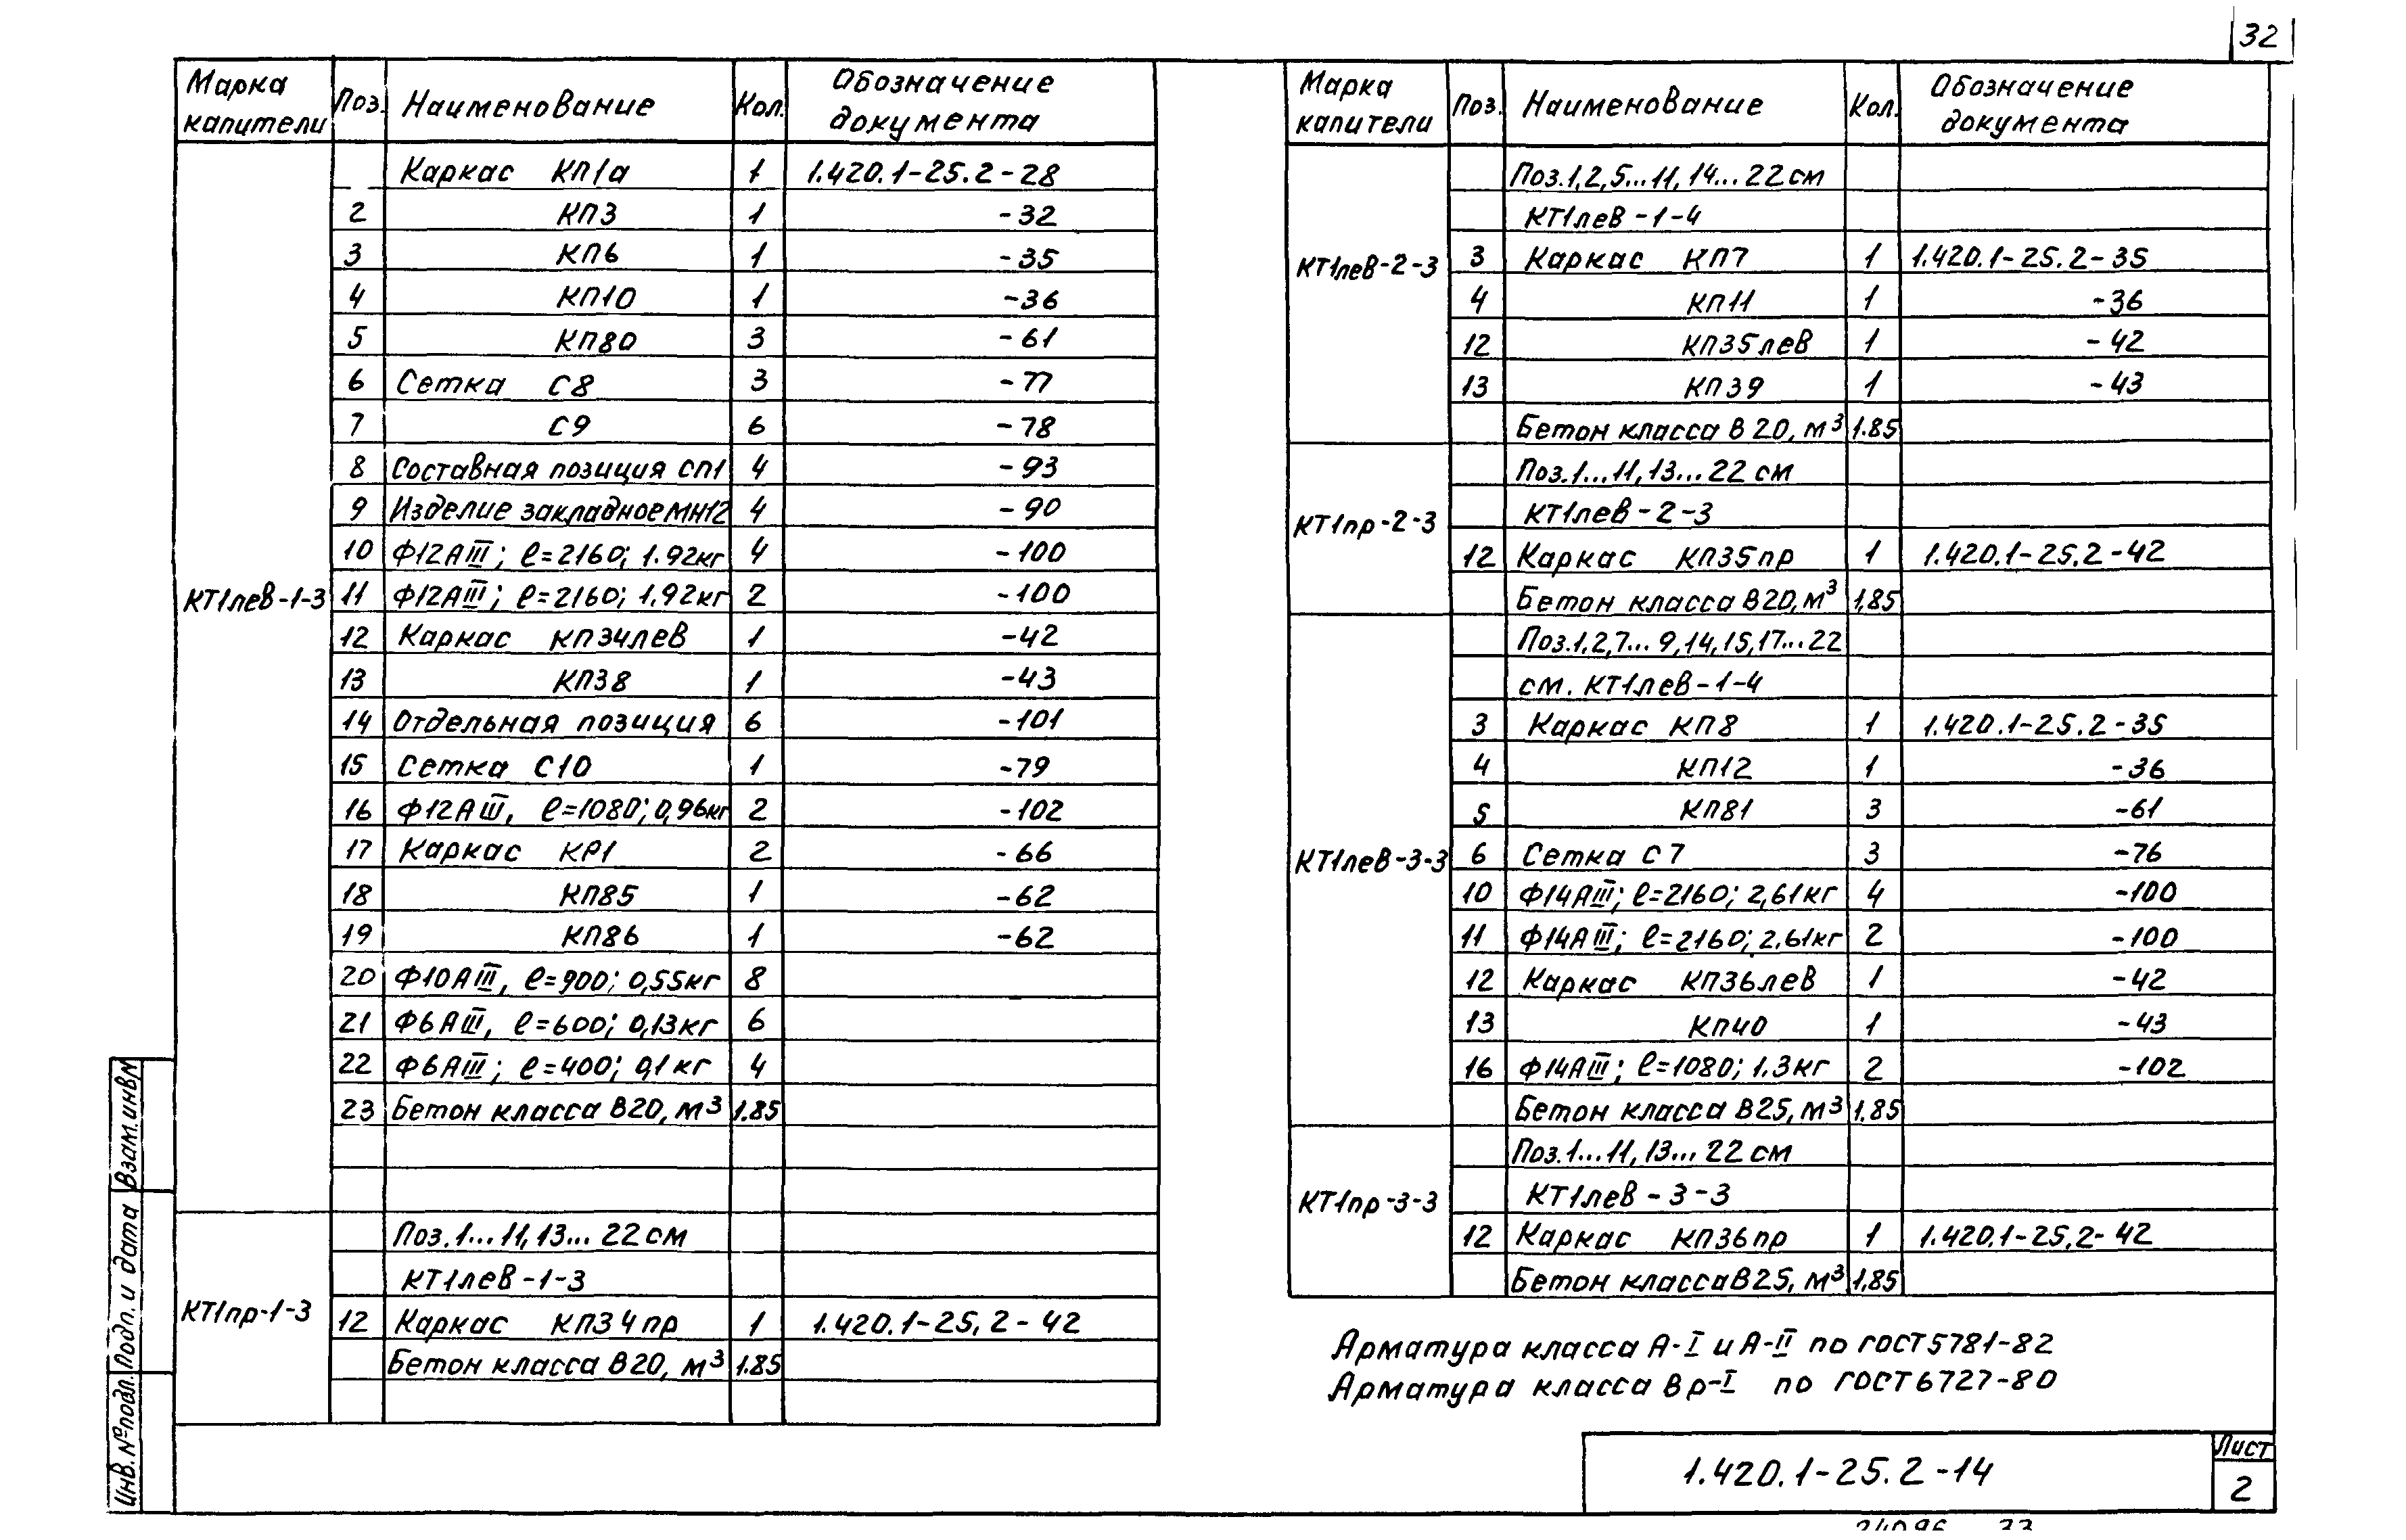 32
Марка капители Поз. Наименование Кол. Обозначение документа
Каркас КП1а 1 1.420.1-25.2-28
2 КП3 1 -32
3 КП6 1 -35
4 КП10 1 -36
5 КП80 3 -61
6 Сетка С8 3 -77
7 С9 6 -78
8 Составная позиция СП1 4 -93
9 Изделие закладное МН12 4 -90
10 Ф12АIII; ℓ=2160; 1.92кг 4 -100
КТ1лев-1-3 11 Ф12АIII; ℓ=2160; 1,92кг 2 -100
12 Каркас КП34лев 1 -42
13 КП38 1 -43
14 Отдельная позиция 6 -101
15 Сетка С10 1 -79
16 Ф12АIII, ℓ=1080; 0,96кг 2 -102
17 Каркас КР1 2 -66
18 КП85 1 -62
19 КП86 1 -62
20 Ф10АIII, ℓ=900; 0,55кг 8
21 Ф6АIII, ℓ=600; 0,13кг 6
22 Ф6АIII; ℓ=400; 0,1кг 4
23 Бетон класса В20, м³ 1.85
Поз.1...11,13...22 см
КТ1лев-1-3
КТ1пр-1-3 12 Каркас КП34пр 1 1.420.1-25,2-42
Бетон класса В20, м³ 1.85
Марка капители Поз. Наименование Кол. Обозначение документа
Поз.1,2,5...11,14...22см
КТ1лев-1-4
КТ1лев-2-3 3 Каркас КП7 1 1.420.1-25.2-35
4 КП11 1 -36
12 КП35лев 1 -42
13 КП39 1 -43
Бетон класса В20, м³ 1.85
Поз.1...11,13...22 см
КТ1пр-2-3 КТ1лев-2-3
12 Каркас КП35пр 1 1.420.1-25.2-42
Бетон класса В20, м³ 1,85
Поз.1,2,7...9,14,15,17...22
см. КТ1лев-1-4
3 Каркас КП8 1 1.420.1-25.2-35
4 КП12 1 -36
5 КП81 3 -61
КТ1лев-3-3 6 Сетка С7 3 -76
10 Ф14АIII; ℓ=2160; 2,61кг 4 -100
11 Ф14АIII; ℓ=2160; 2,61кг 2 -100
12 Каркас КП36лев 1 -42
13 КП40 1 -43
16 Ф14АIII; ℓ=1080; 1.3кг 2 -102
Бетон класса В25, м³ 1.85
Поз.1...11,13...22см
КТ1пр-3-3 КТ1лев-3-3
12 Каркас КП36пр 1 1.420.1-25.2-42
Бетон класса В25, м³ 1,85
Арматура класса А-I и А-II по ГОСТ5781-82
Арматура класса Вр-I по ГОСТ6727-80
1.420.1-25.2-14
Лист
2
Взам.инв№
Подп. и дата
Инв.№подл.